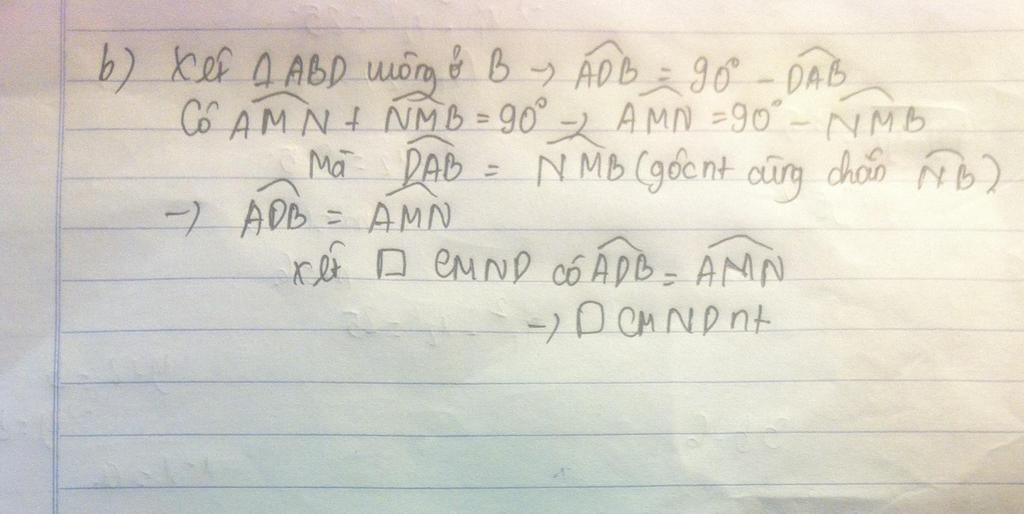 b) Xét △ABD vuông ở B → ADB = 90° - DAB
Có AMN + NMB = 90° → AMN = 90° - NMB
Mà DAB = NMB (góc nt cùng chắn NB)
→ ADB = AMN
xét □ CMND có ADB = AMN
→ □ CMND nt